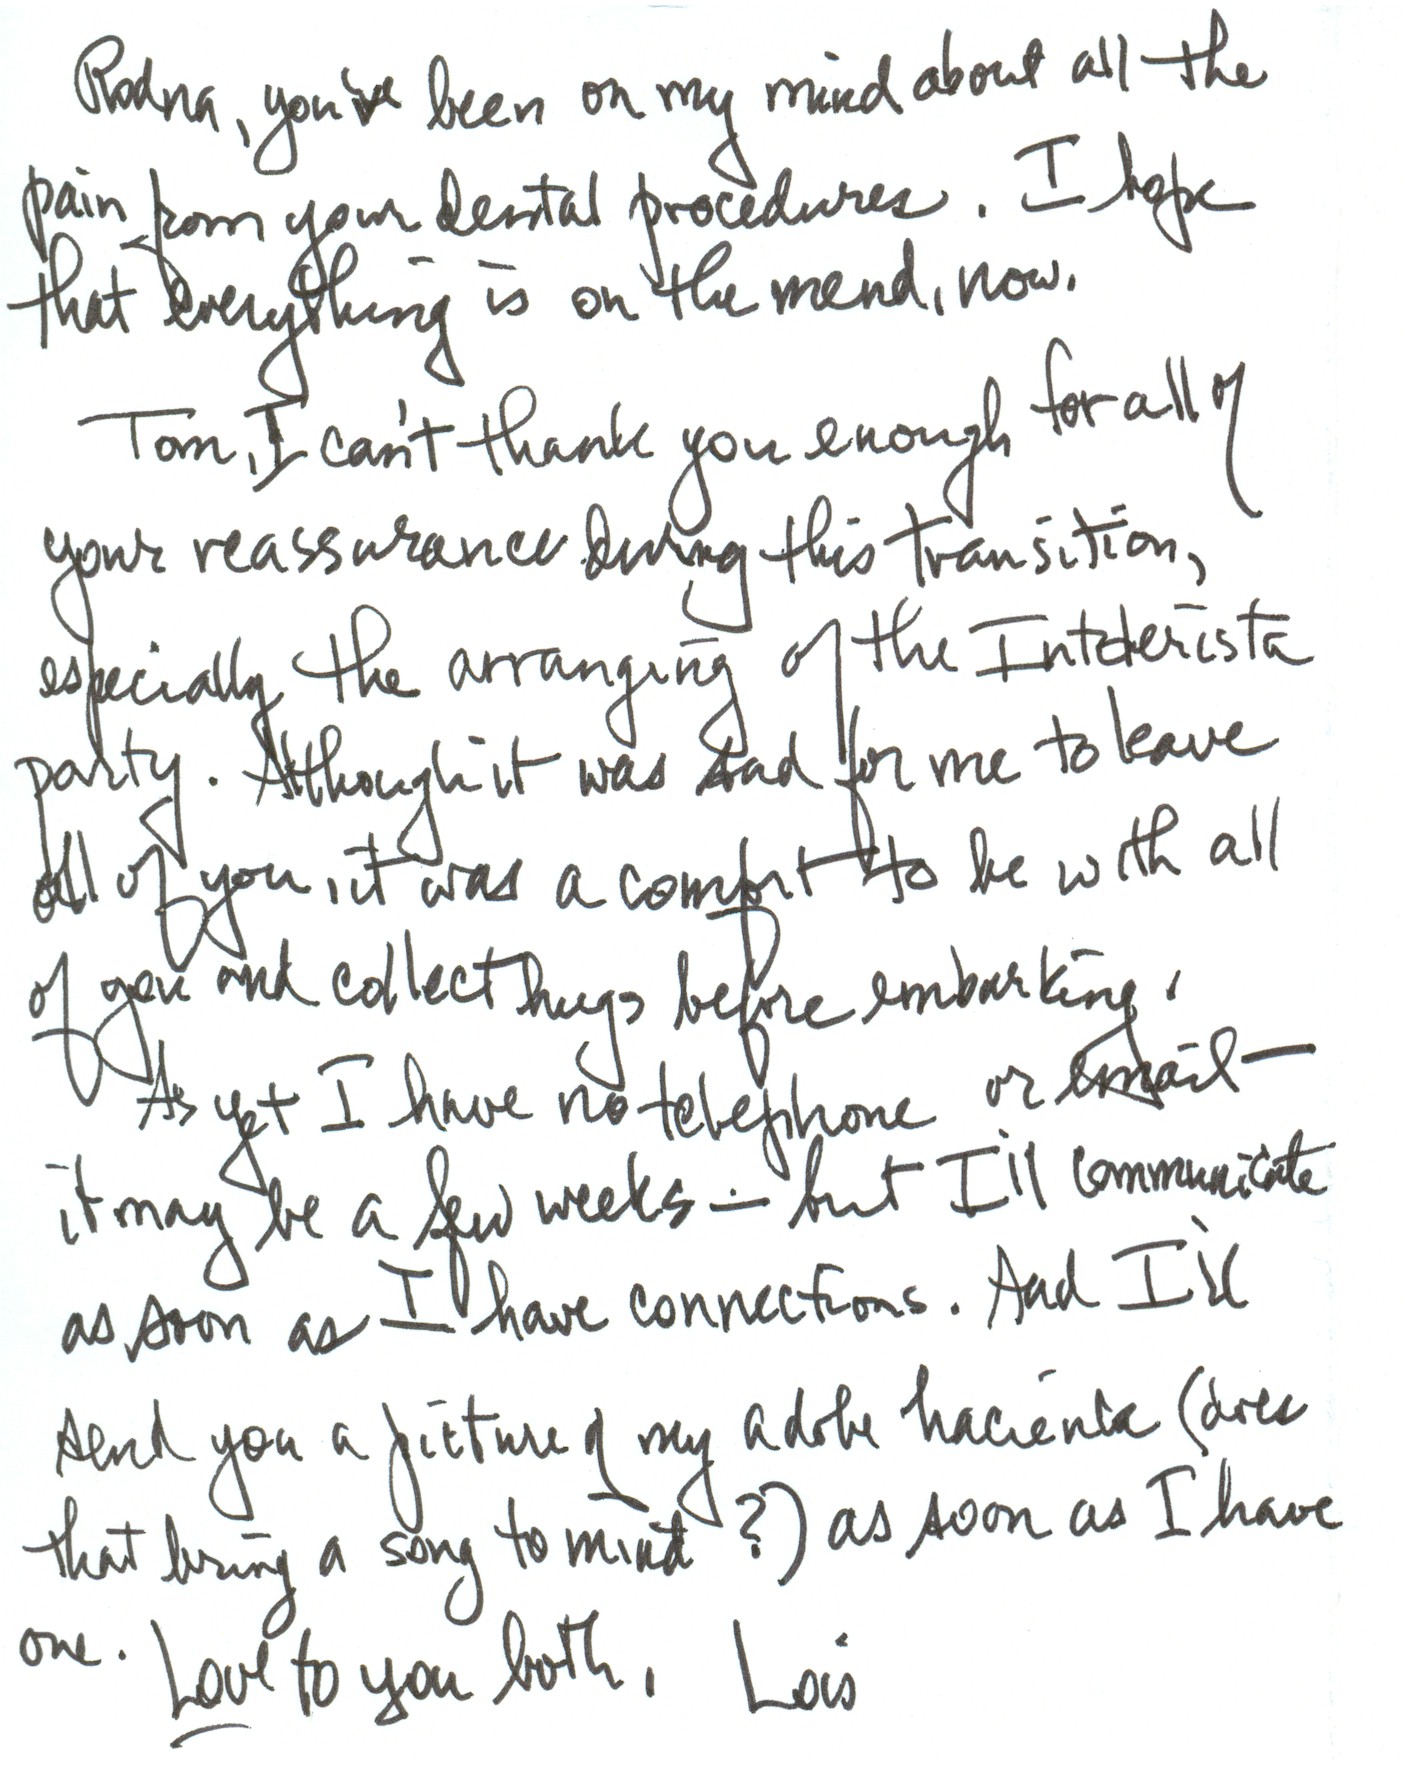 Rodna, you've been on my mind about all the
pain from your dental procedures. I hope
that everything is on the mend, now.
Tom, I can't thank you enough for all of
your reassurance during this transition,
especially the arranging of the
party. Although it was sad for me to leave
all of you, it was a comfort to be with all
of you and collect hugs before embarking.
As yet I have no telephone or email —
it may be a few weeks — but I'll communicate
as soon as I have connections. And I'll
send you a picture of my adobe hacienda (does
that bring a song to mind?) as soon as I have
one. Love to you both, Lois